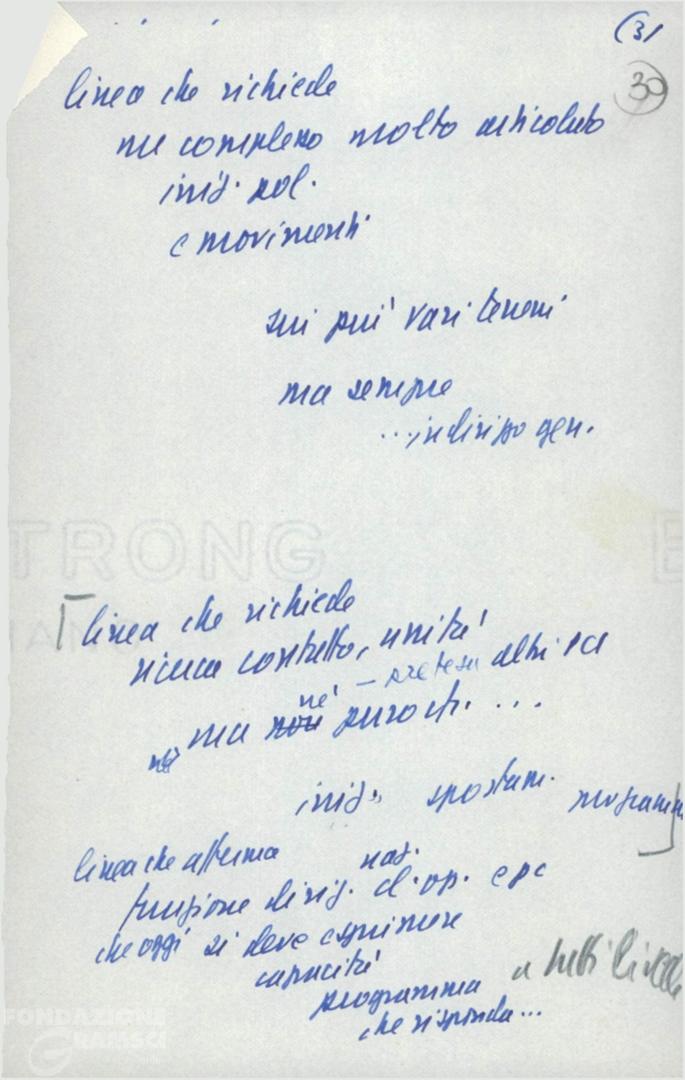 (31
30
linea che richiede
un complesso molto articolato
iniz. pol.
e movimenti
sui più vari terreni
ma sempre
... indirizzo gen.
TRONG
linea che richiede
ricerca contatto, unità
– pretesa altri PC
né
ma non
iniz. spostam. programm
linea che afferma
naz.
funzione dirig. cl. op. e PC
che oggi si deve esprimere
capacità
a tutti livelli
programma
che risponda...
FONDAZIONE
GRAMSCI